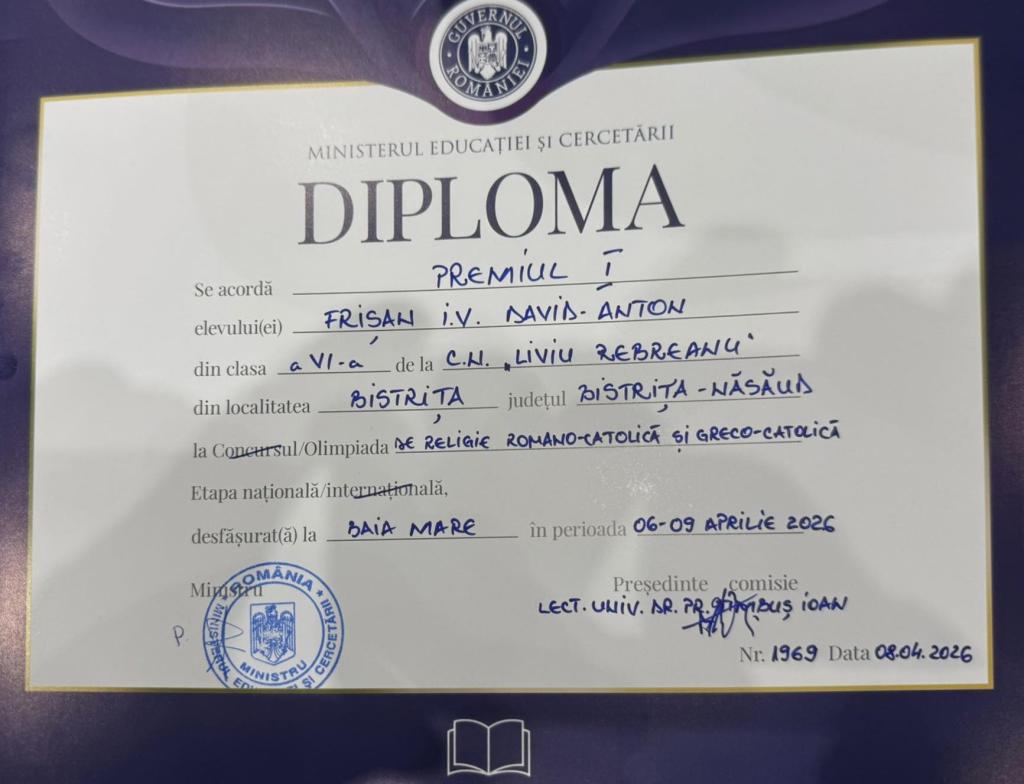 GUVERNUL ROMÂNIEI
MINISTERUL EDUCAȚIEI ȘI CERCETĂRII
DIPLOMA
Se acordă PREMIUL I
elevului(ei) FRIȘAN I.V. DAVID-ANTON
din clasa a VI-a de la C.N. „LIVIU REBREANU"
din localitatea BISTRIȚA județul BISTRIȚA-NĂSĂUD
la Concursul/Olimpiada DE RELIGIE ROMANO-CATOLICĂ ȘI GRECO-CATOLICĂ
Etapa națională/internațională,
desfășurat(ă) la BAIA MARE în perioada 06-09 APRILIE 2026
Ministru Președinte comisie
P. LECT. UNIV. DR. PR. IOAN
ROMÂNIA
MINISTERUL EDUCAȚIEI ȘI CERCETĂRII
MINISTRU
Nr. 1969 Data 08.04.2026